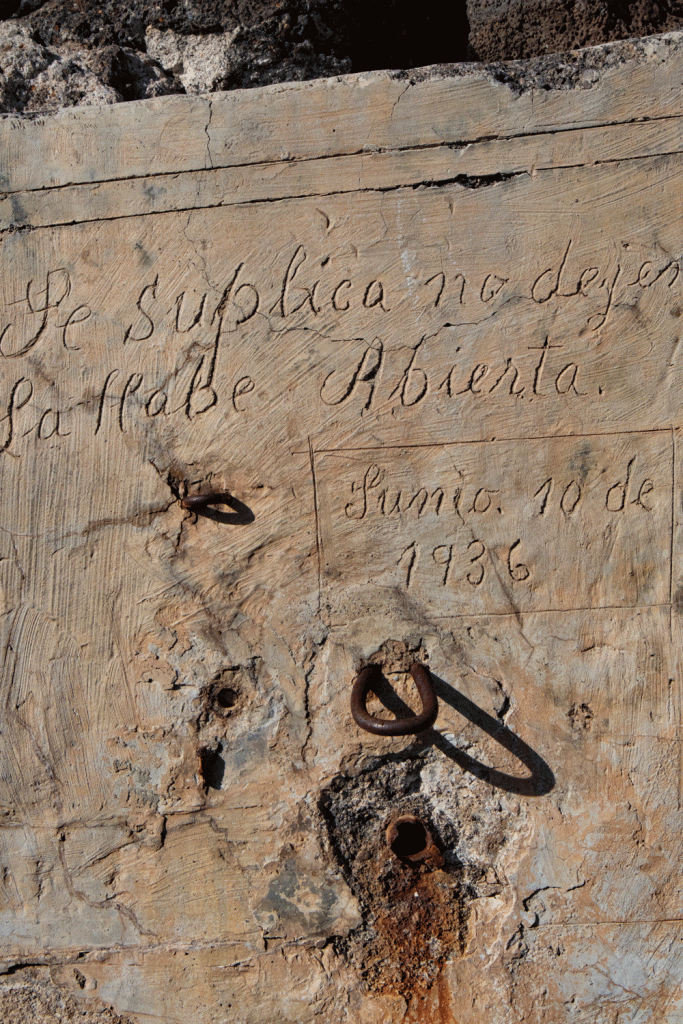 Se suplica no dejen
la Habe Abierta.
Junio. 10 de
1936